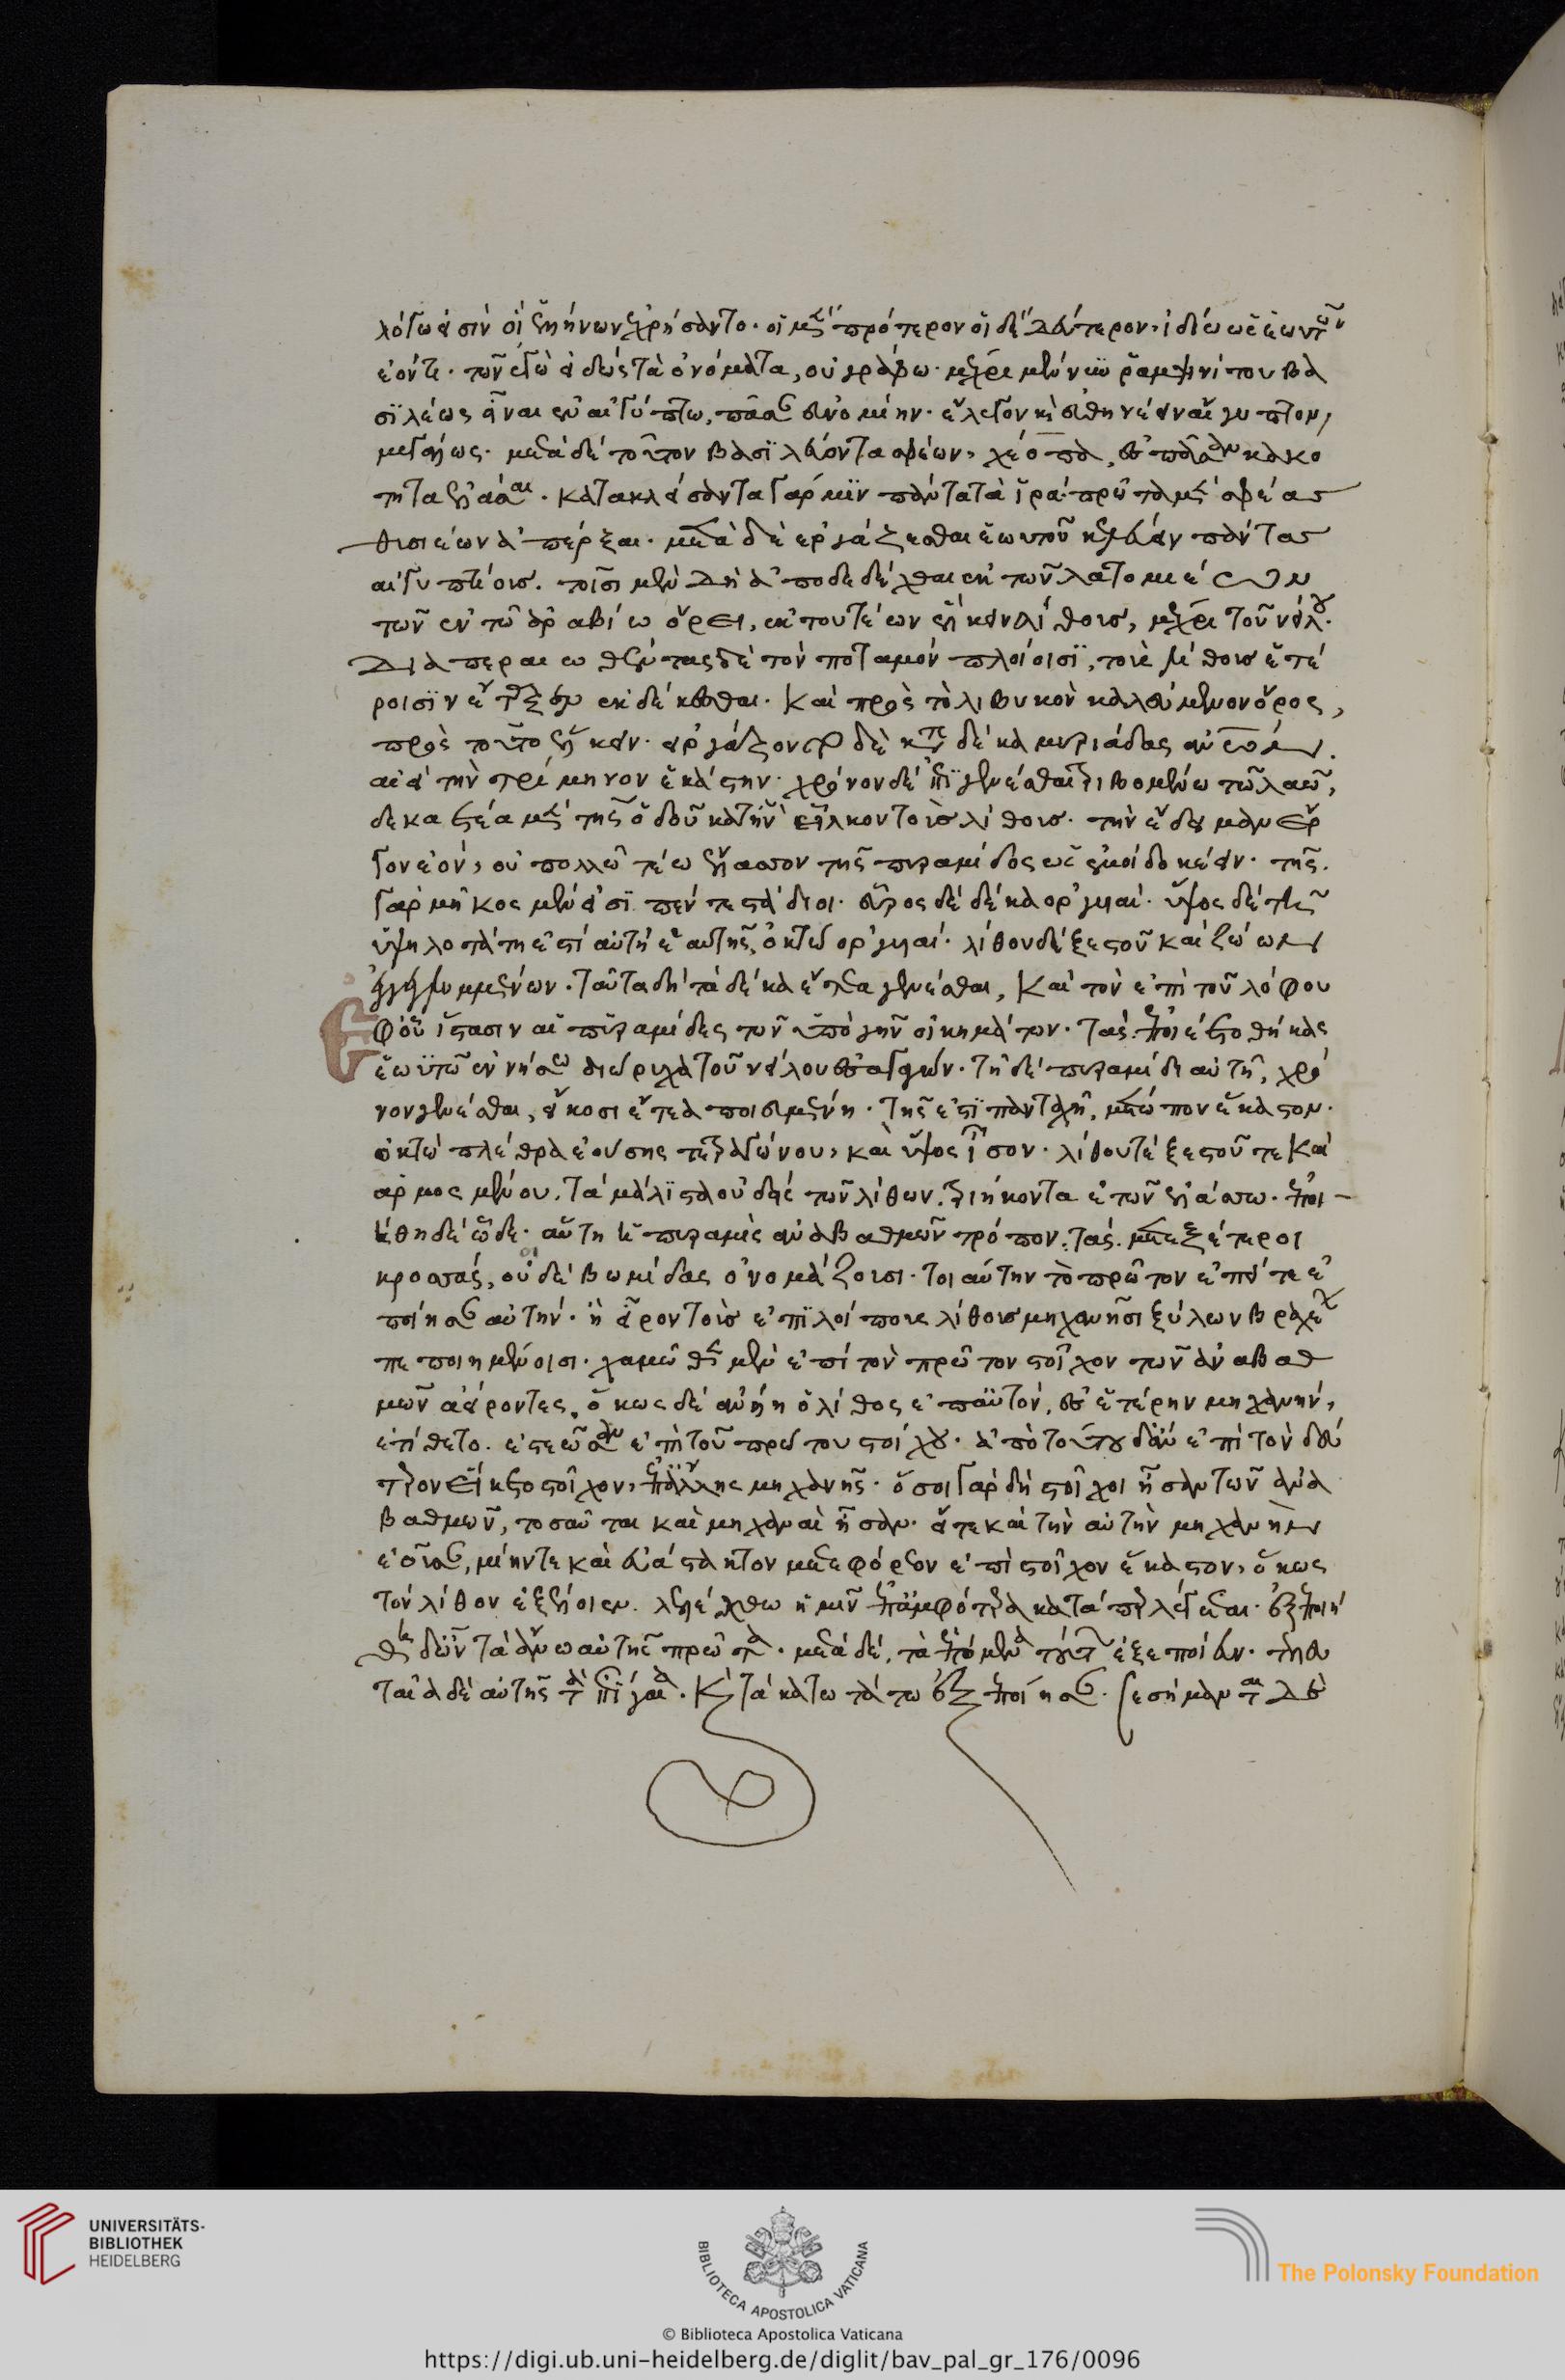 λόγω εἰσὶν οἱ ἑλλήνων ἐχρήσαντο. οἱ μὲν πρότερον οἱ δὲ δεύτερον, ἰδίω ὡς ἑωυτῶν
ἐόντι. τῶν ἐγὼ εἰδὼς τὰ ὀνόματα, οὐ γράφω. μέχρι μέν νυν ῥαμψινίτου βα
σιλέως εἶναι ἐν αἰγύπτω, πᾶσαν εὐνομίην. ἔλεγον καὶ εὐθηνέειν αἴγυπτον,
μεγάλως. μετὰ δὲ τοῦτον βασιλεύοντα σφέων, χέοπα, ἐς πᾶσαν κακο
τητα ἐλάσαι. κατακλείσαντα γάρ μιν πάντα τὰ ἱρά. πρῶτα μὲν σφέας
θυσιέων ἀπέρξαι. μετὰ δὲ ἐργάζεσθαι ἑωυτοῦ κελεύειν πάντας
αἰγυπτίοις. τοῖσι μὲν δὴ ἀποδεδέχθαι ἐκ τῶν λατομιέων
τῶν ἐν τῶ ἀραβίω ὄρει, ἐκ τουτέων ἕλκειν λίθους, μέχρι τοῦ νείλου.
διαπεραιωθέντας δὲ τὸν ποταμὸν πλοίοισι, τοὺς λίθους ἑτέ
ροισιν ἔταξεν ἐκδέκεσθαι. καὶ πρὸς τὸ λιβυκὸν καλεύμενον ὄρος,
πρὸς τοῦτο ἕλκειν. ἐργάζοντο δὲ κατὰ δέκα μυριάδας ἀνθρώπων.
αἰεὶ τὴν τρίμηνον ἑκάστην. χρόνον δὲ ἐπιγενέσθαι τριβομένω τῶ λαῶ,
δέκα ἔτεα μὲν τῆς ὁδοῦ κατ' ἣν εἷλκον τοὺς λίθους. τὴν ἔδειμαν ἔρ
γον ἐὸν, οὐ πολλῶ τέω ἔλασσον τῆς πυραμίδος ὡς ἐμοὶ δοκέειν. τῆς
γὰρ μῆκος μέν εἰσι πέντε στάδιοι. εὖρος δὲ δέκα ὀργυιαί. ὕψος δὲ τῆς
ὑψηλοτάτη ἐστὶ αὐτὴ ἑαυτῆς, ὀκτὼ ὀργυιαί. λίθου δὲ ξεστοῦ καὶ ζώων
ἐγγεγλυμμένων. ταῦτα δὴ τὰ δέκα ἔτεα γενέσθαι, καὶ τὸν ἐπὶ τοῦ λόφου
Εφ' οὗ ἱστᾶσιν αἱ πυραμίδες τῶν ὑπὸ γῆν οἰκημάτων. τὰς ἐποιέετο θήκας
ἑωυτῶ ἐν νήσω διώρυχα τοῦ νείλου ἐσαγαγών. τῆ δὲ πυραμίδι αὐτῆ, χρό
νον γενέσθαι, εἴκοσι ἔτεα ποιευμένη. τῆς ἐστι πανταχῆ, μέτωπον ἕκαστον.
ὀκτὼ πλέθρα ἐούσης τετραγώνου, καὶ ὕψος ἶσον. λίθου τε ξεστοῦ τε καὶ
ἁρμοσμένου. τὰ μάλιστα οὐδεὶς τῶν λίθων τριήκοντα ἐτῶν ἐλάσσω. ἐποι
ήθη δὲ ὧδε. αὕτη ἡ πυραμὶς ἀναβαθμῶν τρόπον. τὰς μετεξέτεροι
κρόσσας, οἱ δὲ βωμίδας ὀνομάζουσι. τοιαύτην τὸ πρῶτον ἐπεί τε ἐ
ποίησαν αὐτήν. ἤειρον τοὺς ἐπιλοίπους λίθους μηχανῆσι ξύλων βραχέων
πεποιημένοισι. χαμᾶθεν μὲν ἐπὶ τὸν πρῶτον στοῖχον τῶν ἀναβαθ
μῶν ἀείροντες. ὅκως δὲ ἀνίη ὁ λίθος ἐπ' αὐτόν, ἐς ἑτέρην μηχανήν,
ἐτίθετο. ἑστεῶσαν ἐπὶ τοῦ πρώτου στοίχου. ἀπὸ τούτου δὲ ἐπὶ τὸν δεύ
τερον εἵλκετο στοῖχον, ἐπ' ἄλλης μηχανῆς. ὅσοι γὰρ δὴ στοῖχοι ἦσαν τῶν ἀνα
βαθμῶν, τοσαῦται καὶ μηχαναὶ ἦσαν. εἴτε καὶ τὴν αὐτὴν μηχανὴν
ἐοῦσαν, μίην τε καὶ εὐβάστακτον μετεφόρεον ἐπὶ στοῖχον ἕκαστον, ὅκως
τὸν λίθον ἐξέλοιεν. λελέχθω ἡμῖν ἐπ' ἀμφότερα κατά περ λέγεται. ἐξεποιή
θη δ' ὦν τὰ ἄνω αὐτῆς πρῶτα. μετὰ δὲ, τὰ ἑπόμενα τούτων ἐξεποίευν. τελευ
ταῖα δὲ αὐτῆς τὰ ἐπίγαια. καὶ τὰ κατωτάτω ἐξεποίησαν. σεσήμανται δὲ
UNIVERSITÄTS-
BIBLIOTHEK
HEIDELBERG
BIBLIOTECA APOSTOLICA VATICANA
The Polonsky Foundation
© Biblioteca Apostolica Vaticana
https://digi.ub.uni-heidelberg.de/diglit/bav_pal_gr_176/0096